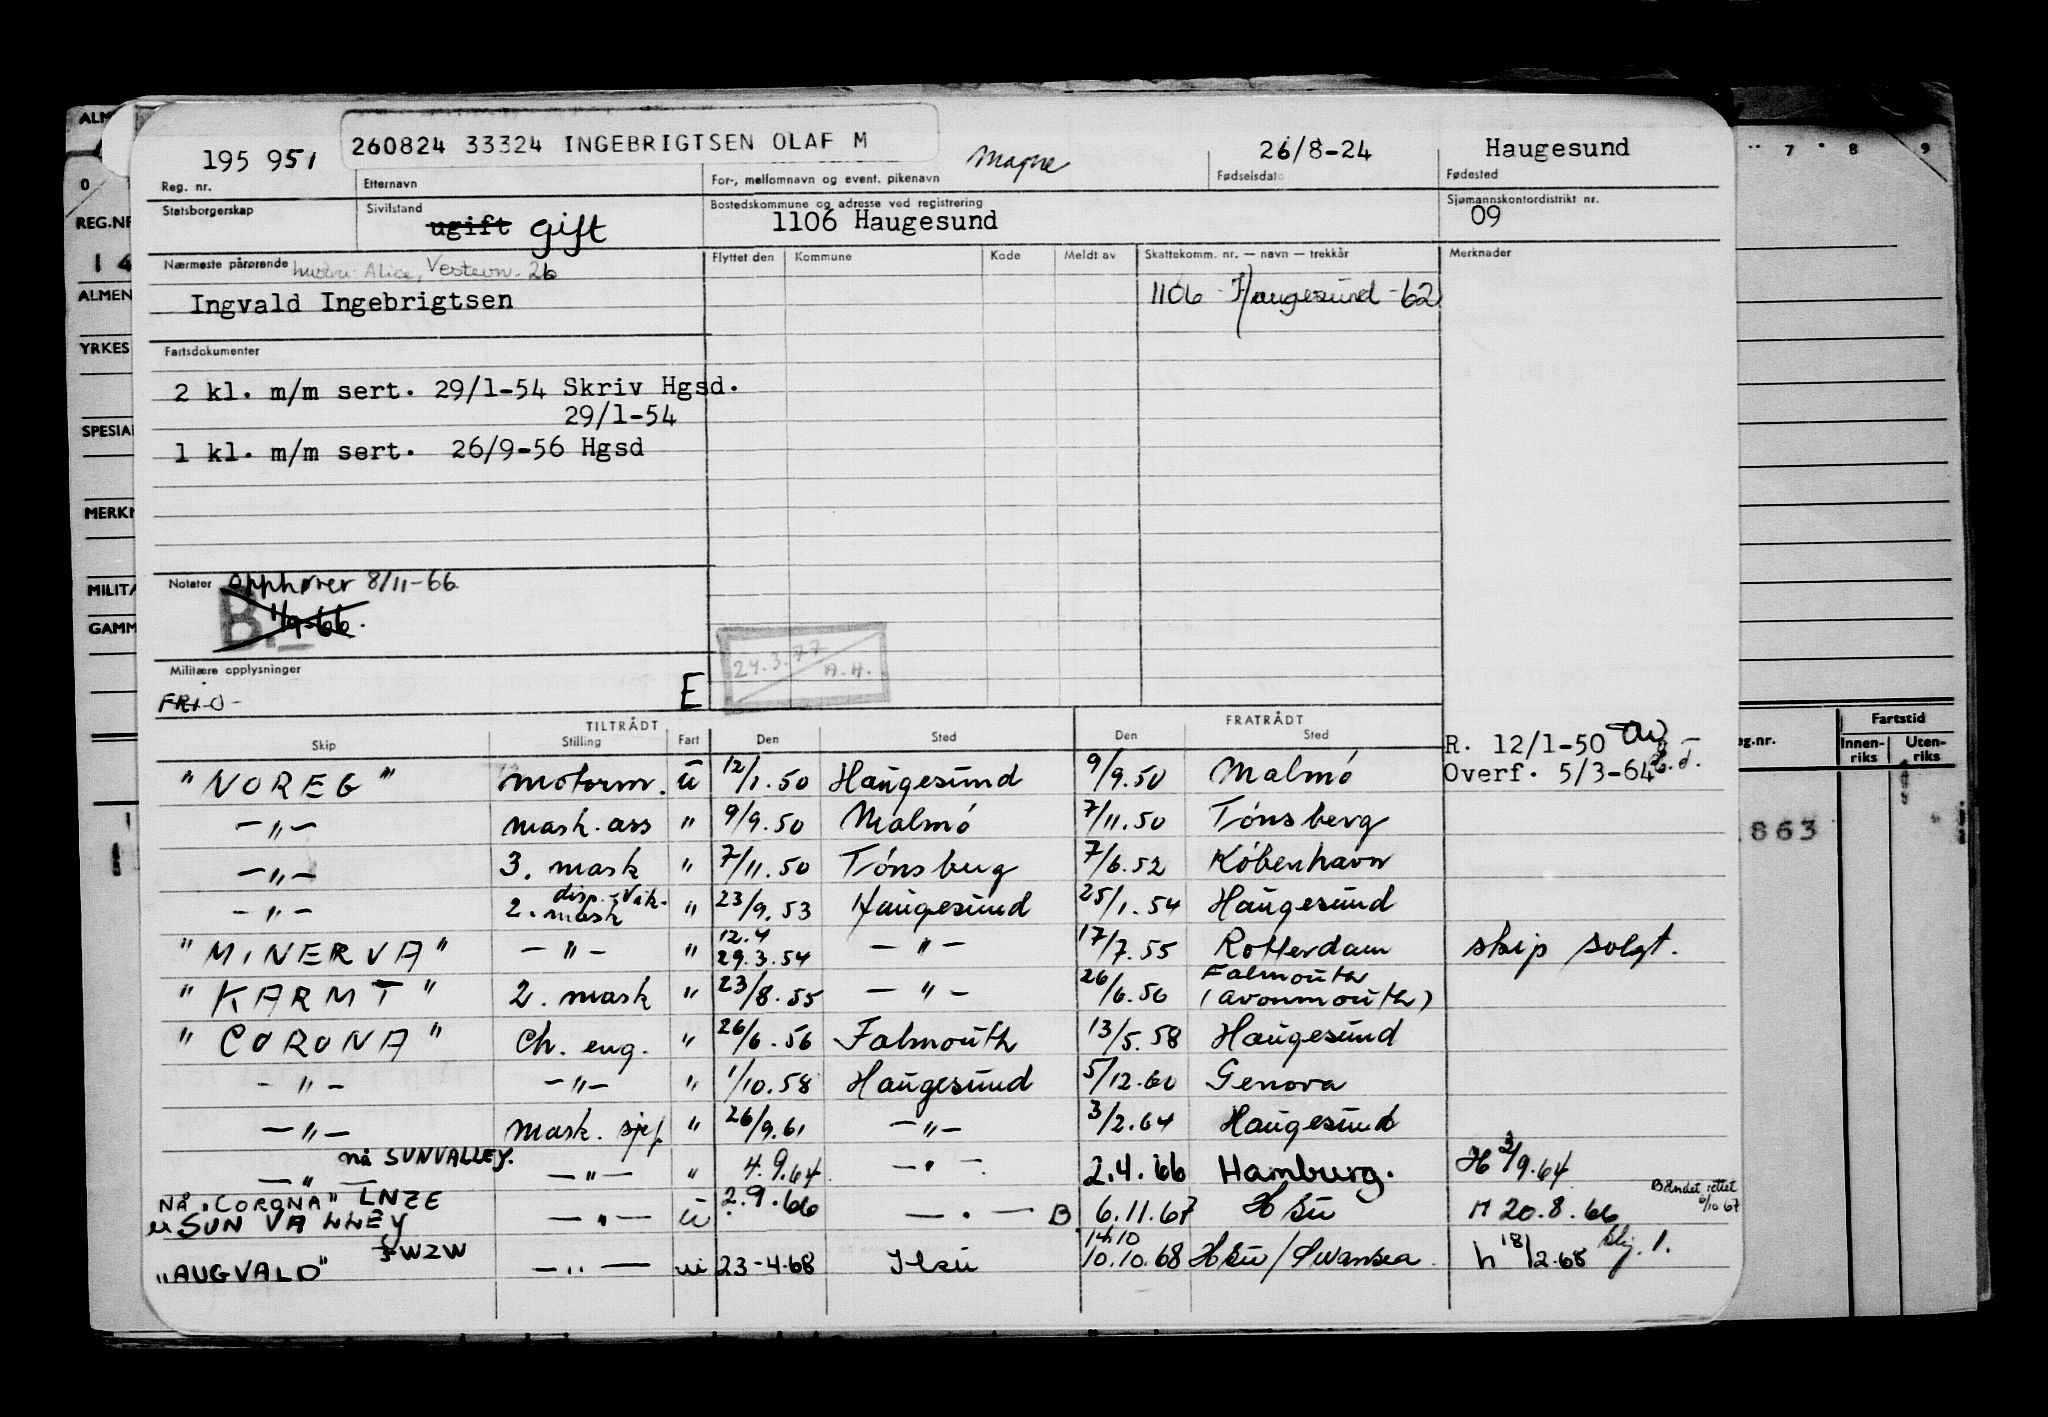 195 951
260824 33324 INGEBRIGTSEN OLAF M
Magne
26/8-24
Haugesund
Reg. nr.
Etternavn
For-, mellomnavn og event. pikenavn
Fødselsdato
Fødested
Statsborgerskap
Sivilstand
ugift gift
Bostedskommune og adresse ved registrering
1106 Haugesund
Sjømannskontordistrikt nr.
09
Nærmeste pårørende hustru: Alice, Vestevn. 26
Ingvald Ingebrigtsen
Flyttet den
Kommune
Kode
Meldt av
Skattekomm. nr. — navn — trekkår
1106 Haugesund -62
Merknader
Fartsdokumenter
2 kl. m/m sert. 29/1-54 Skriv Hgsd.
29/1-54
1 kl. m/m sert. 26/9-56 Hgsd
Notater opphører 8/11-66
B. 1/9-66.
24.3.77
A.H.
Militære opplysninger
E
TILTRÅDT
FRATRÅDT
Skip Stilling Fart Den Sted Den Sted
R. 12/1-50
Overf. 5/3-64
"NOREG" motorm. u 12/1.50 Haugesund 9/9.50 Malmö
-"- mask. ass " 9/9.50 Malmö 7/11.50 Tönsberg
-"- 3. mask " 7/11.50 Tönsberg 7/6.52 København
-"- 2. mask disp. vik. " 23/9.53 Haugesund 25/1.54 Haugesund
"MINERVA" -"- " 12.4 29.3.54 -"- 17/7.55 Rotterdam skip solgt.
"KARMT" 2. mask " 23/8.55 -"- 26/6.56 Falmouth (avonmouth)
"CORONA" Ch. eng. " 26/6.56 Falmouth 13/5.58 Haugesund
-"- -"- " 1/10.58 Haugesund 5/12.60 Genova
-"- Mask. sjef " 26/9.61 -"- 3/2.64 Haugesund
-"- nå SUNVALLEY. -"- " 4.9.64 -"- 2.4.66 Hamburg. H 3/9.64
NÅ "CORONA" LNZE
SUN VALLEY -"- u 2.9.66 -"- B 6.11.67 HSu M 20.8.66 Båndet rettet 6/10 67
"AUGVALD" JWZW -"- u 23-4.68 Hsu 14.10 10.10.68 HSu/Swansea. h 18/2.68 Blj. 1.
ALM
0
REG.NR
1 4
ALMEN
YRKES
SPESIAL
MERKN
MILITÆ
GAMM
7 8 9
eg.nr.
Fartstid
Innen-riks
Uten-riks
863